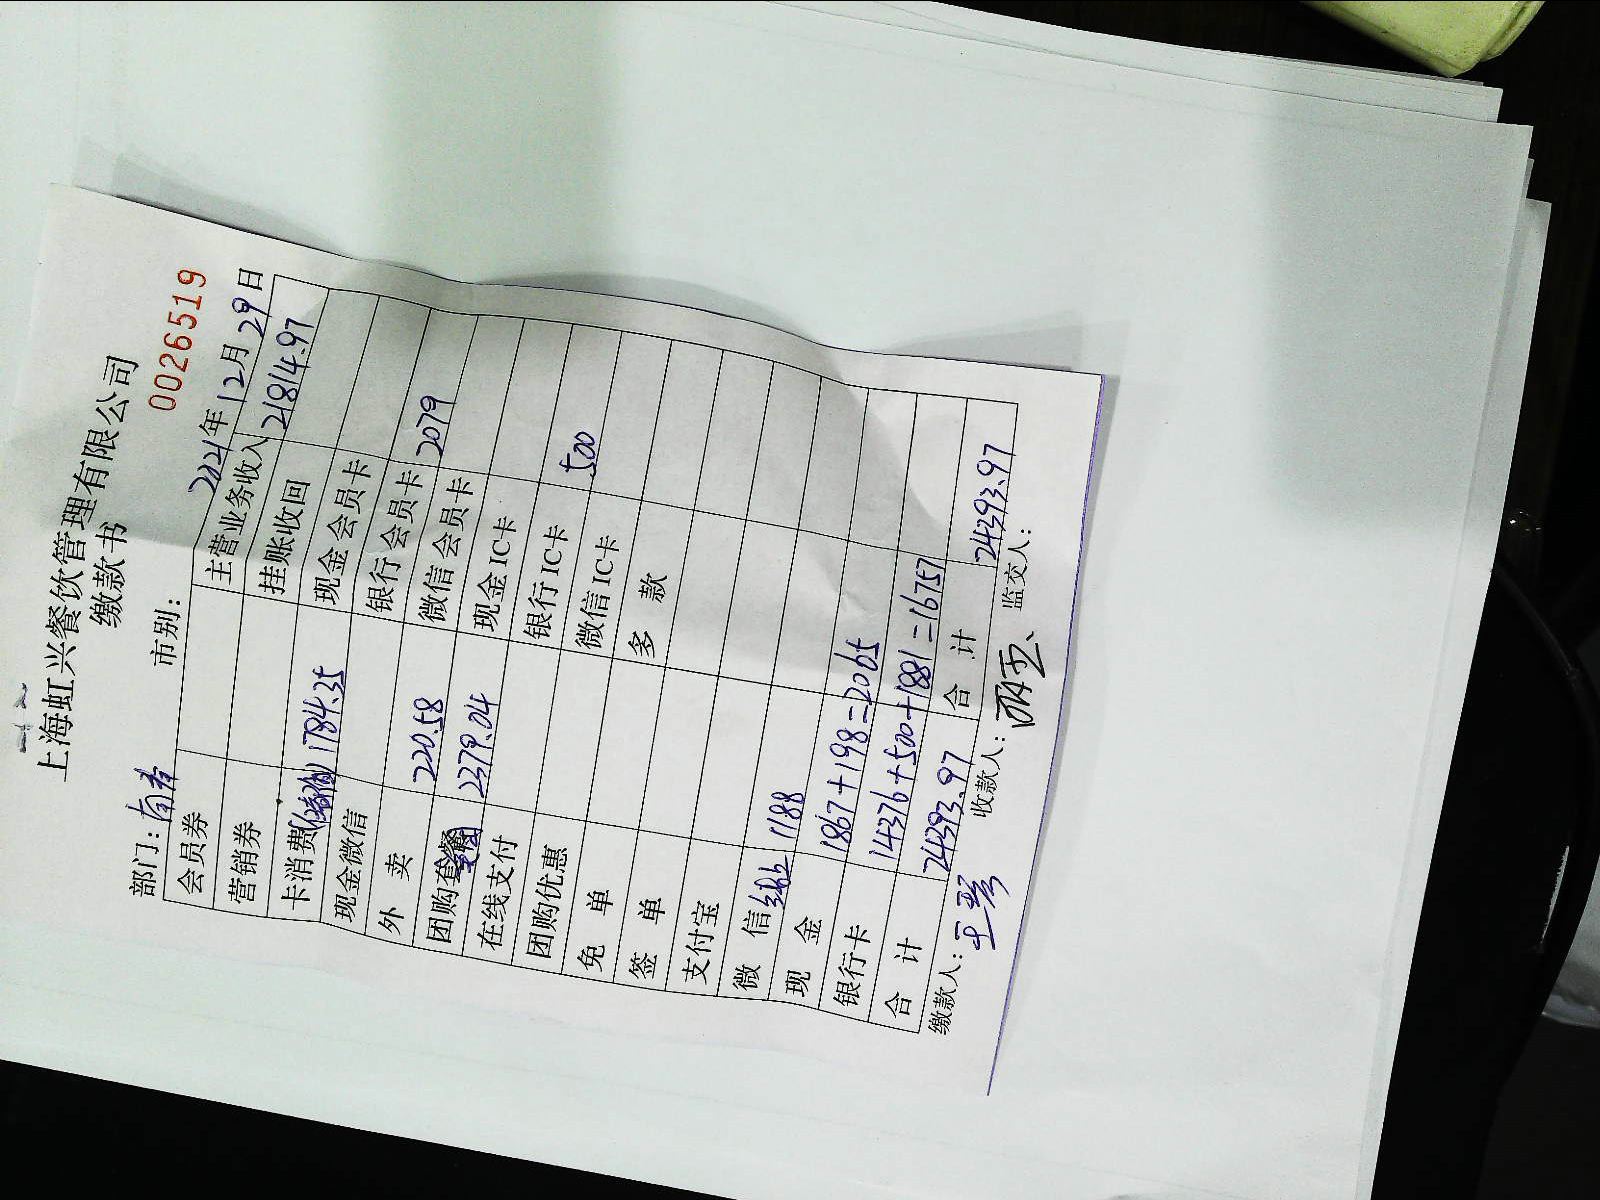 上海虹兴餐饮管理有限公司
缴款书
0026519
部门: 市别: 2021年12月29日
会员券 主营业务收入 21814.97
营销券 挂账收回
卡消费(储值) 1784.35 现金会员卡
现金微信 银行会员卡 2079
外卖 220.58 微信会员卡
团购套餐 2379.04 现金IC卡
在线支付 银行IC卡 500
团购优惠 微信IC卡
免单 多款
签单
支付宝
微信 线上 1188
现金 1867+198=2065
银行卡 14376+500+1881=16757
合计 24393.97 合计 24393.97
缴款人: 王琴 收款人: 监交人: